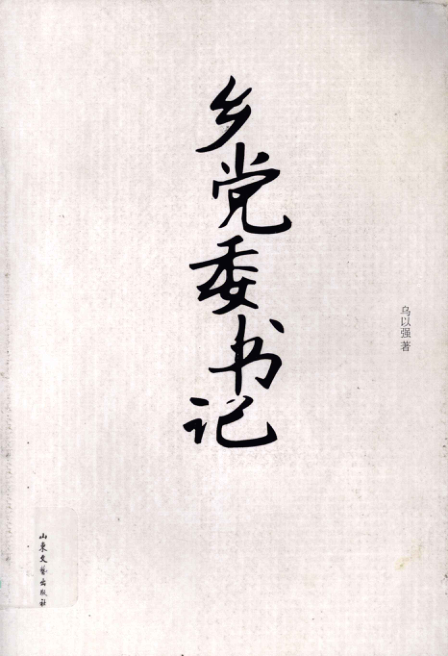 乡党委书记
乌以强 著
山东文艺出版社